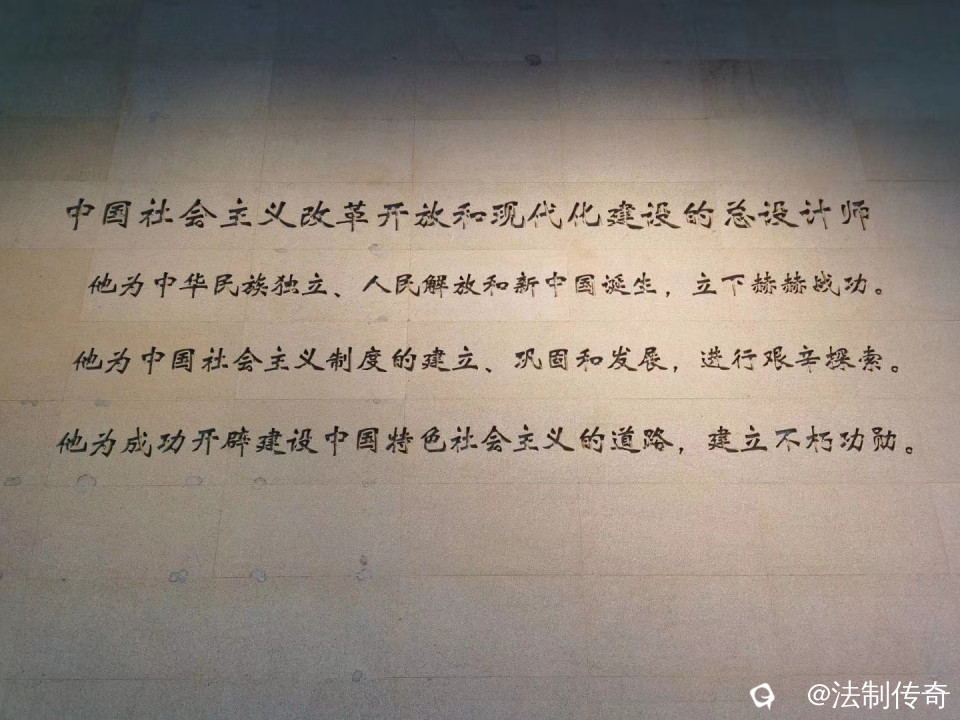 中国社会主义改革开放和现代化建设的总设计师
他为中华民族独立、人民解放和新中国诞生，立下赫赫战功。
他为中国社会主义制度的建立、巩固和发展，进行艰辛探索。
他为成功开辟建设中国特色社会主义的道路，建立不朽功勋。
@法制传奇